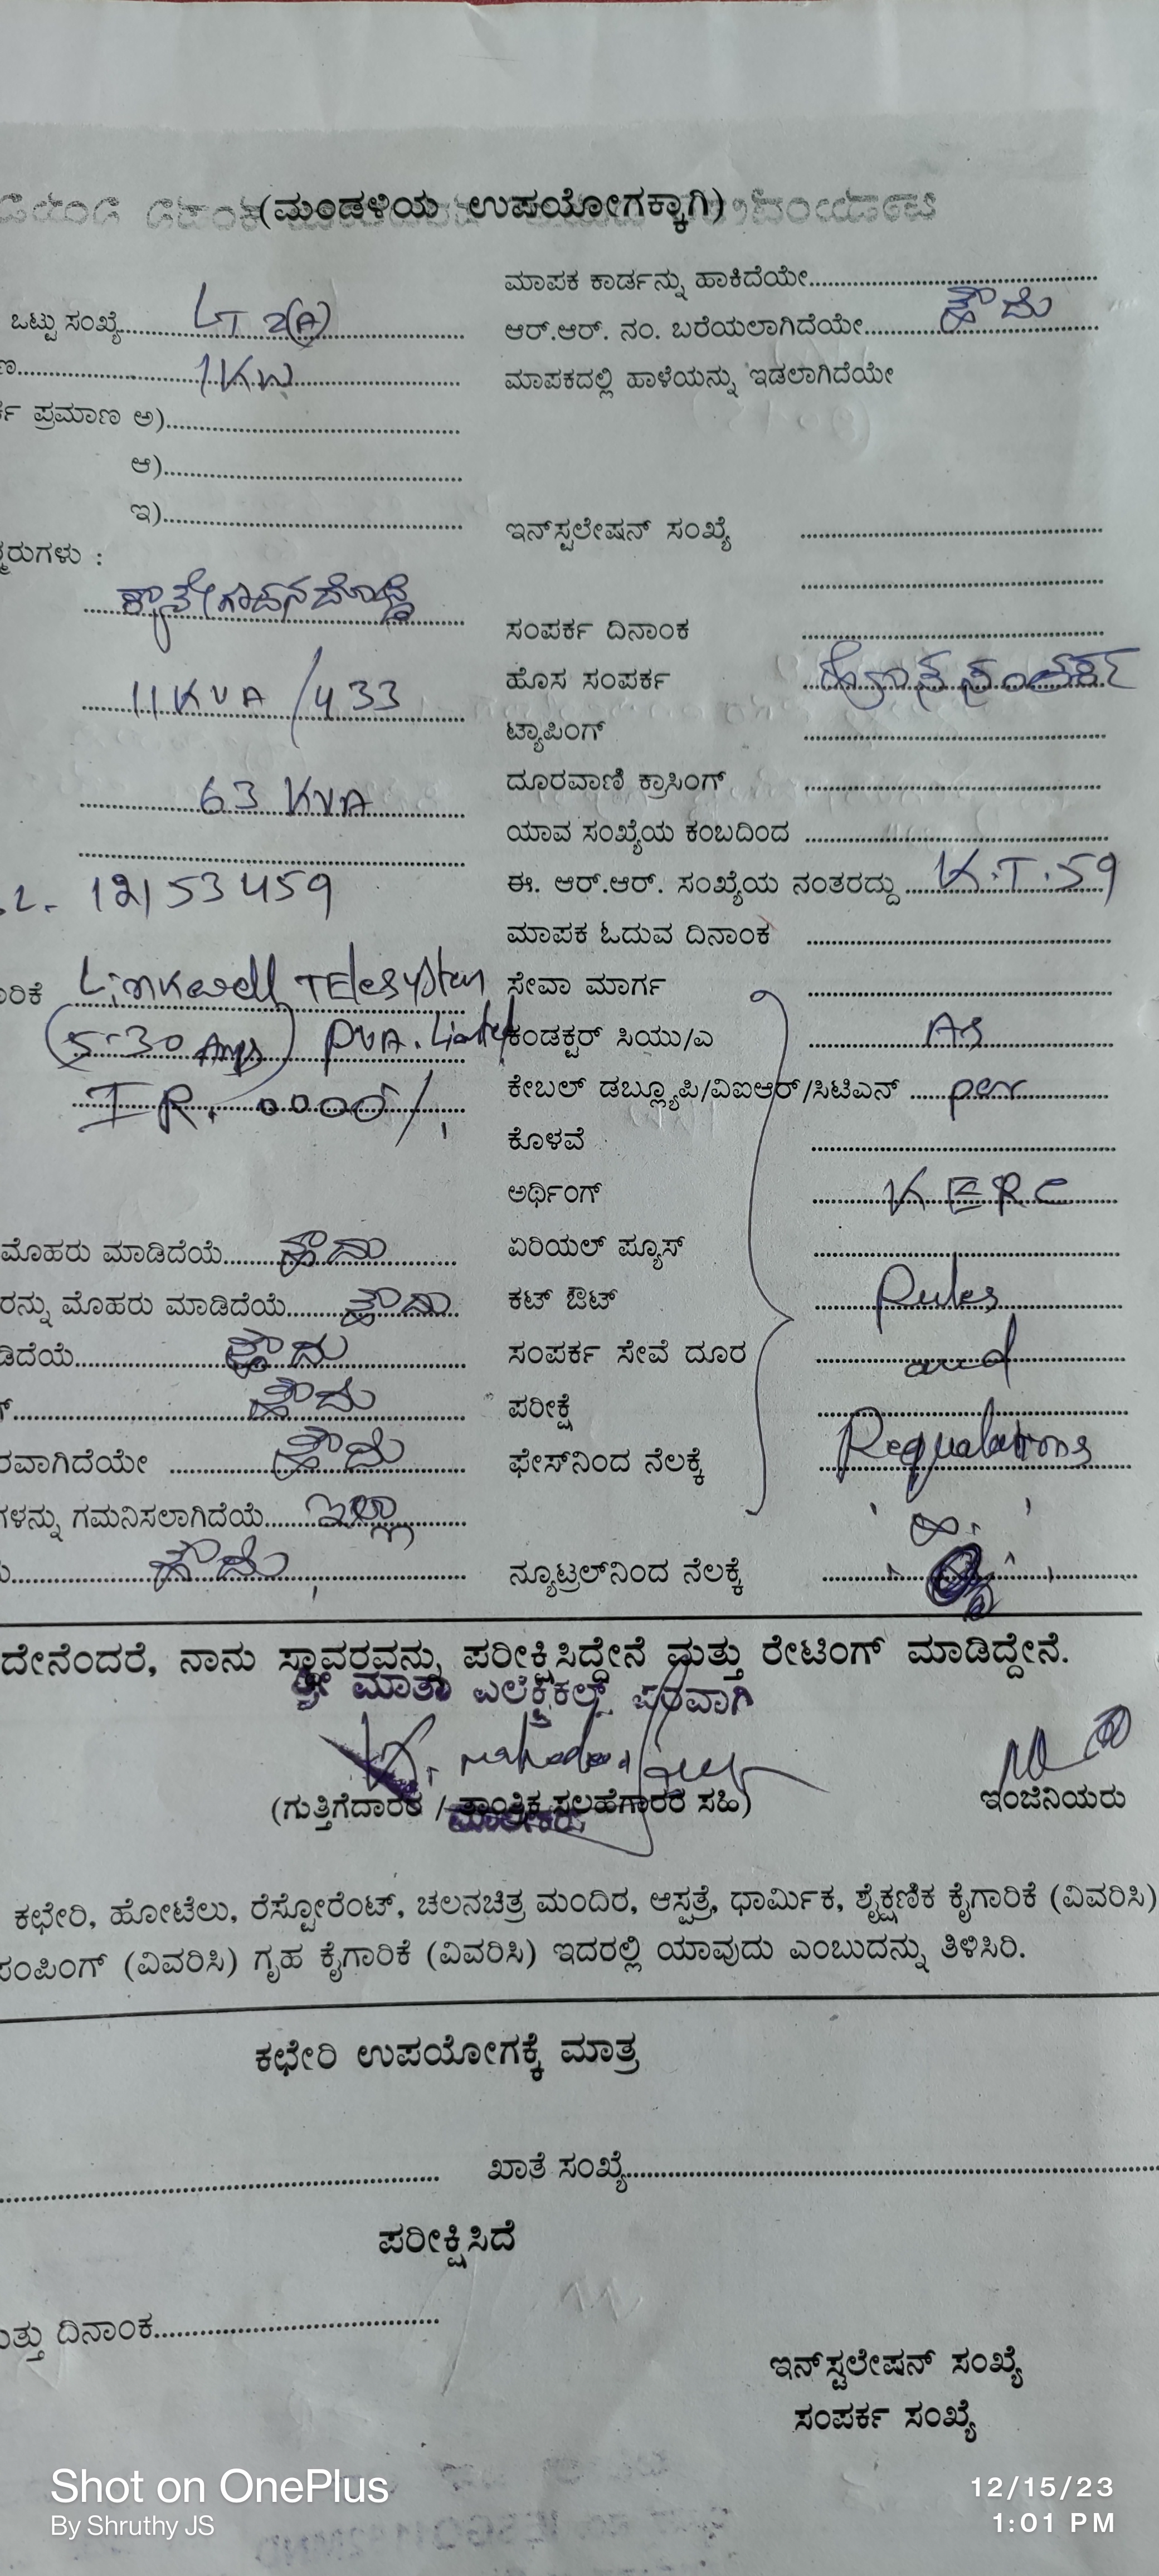 (ಮಂಡಳಿಯ ಉಪಯೋಗಕ್ಕಾಗಿ)
ಮಾಪಕ ಕಾರ್ಡನ್ನು ಹಾಕಿದೆಯೇ
ಒಟ್ಟು ಸಂಖ್ಯೆ LT 2(A)
ಆರ್.ಆರ್. ನಂ. ಬರೆಯಲಾಗಿದೆಯೇ ಹೌದು
1KW
ಮಾಪಕದಲ್ಲಿ ಹಾಳೆಯನ್ನು ಇಡಲಾಗಿದೆಯೇ
ಪ್ರಮಾಣ ಅ)
ಆ)
ಇ)
ಇನ್‌ಸ್ಟಲೇಷನ್ ಸಂಖ್ಯೆ
ಸಂಪರ್ಕ ದಿನಾಂಕ
11 KVA /433
ಹೊಸ ಸಂಪರ್ಕ
ಟ್ಯಾಪಿಂಗ್
ದೂರವಾಣಿ ಕ್ರಾಸಿಂಗ್
63 KVA
ಯಾವ ಸಂಖ್ಯೆಯ ಕಂಬದಿಂದ
12153459
ಈ. ಆರ್.ಆರ್. ಸಂಖ್ಯೆಯ ನಂತರದ್ದು K.T.59
ಮಾಪಕ ಓದುವ ದಿನಾಂಕ
Linkwell TElesystem
ಸೇವಾ ಮಾರ್ಗ
(5-30 Amps)
ಕಂಡಕ್ಟರ್ ಸಿಯು/ಎ As
I R. 0000/.
ಕೇಬಲ್ ಡಬ್ಲ್ಯೂಪಿ/ವಿಐಆರ್/ಸಿಟಿಎನ್ per
ಕೊಳವೆ
ಅರ್ಥಿಂಗ್ KERC
ಮೊಹರು ಮಾಡಿದೆಯೆ ಹೌದು
ಏರಿಯಲ್ ಪ್ಯೂಸ್
ಮೊಹರು ಮಾಡಿದೆಯೆ ಹೌದು
ಕಟ್ ಔಟ್ Rules
ಹೌದು
ಸಂಪರ್ಕ ಸೇವೆ ದೂರ and
ಹೌದು
ಪರೀಕ್ಷೆ
ಹೌದು
ಫೇಸ್‌ನಿಂದ ನೆಲಕ್ಕೆ Regualations
ಗಮನಿಸಲಾಗಿದೆಯೆ ಇಲ್ಲಾ
ಹೌದು
ನ್ಯೂಟ್ರಲ್‌ನಿಂದ ನೆಲಕ್ಕೆ
ನಾನು ಸ್ಥಾವರವನ್ನು ಪರೀಕ್ಷಿಸಿದ್ದೇನೆ ಮತ್ತು ರೇಟಿಂಗ್ ಮಾಡಿದ್ದೇನೆ.
ಶ್ರೀ ಮಾತಾ ಎಲೆಕ್ಟ್ರಿಕಲ್ಸ್ ಪರವಾಗಿ
(ಗುತ್ತಿಗೆದಾರರ / ತಾಂತ್ರಿಕ ಸಲಹೆಗಾರರ ಸಹಿ)
ಇಂಜಿನಿಯರು
ಮಾಲೀಕರು
ಕಛೇರಿ, ಹೋಟೆಲು, ರೆಸ್ಟೋರೆಂಟ್, ಚಲನಚಿತ್ರ ಮಂದಿರ, ಆಸ್ಪತ್ರೆ, ಧಾರ್ಮಿಕ, ಶೈಕ್ಷಣಿಕ ಕೈಗಾರಿಕೆ (ವಿವರಿಸಿ)
(ವಿವರಿಸಿ) ಗೃಹ ಕೈಗಾರಿಕೆ (ವಿವರಿಸಿ) ಇದರಲ್ಲಿ ಯಾವುದು ಎಂಬುದನ್ನು ತಿಳಿಸಿರಿ.
ಕಛೇರಿ ಉಪಯೋಗಕ್ಕೆ ಮಾತ್ರ
ಖಾತೆ ಸಂಖ್ಯೆ
ಪರೀಕ್ಷಿಸಿದೆ
ದಿನಾಂಕ
ಇನ್‌ಸ್ಟಲೇಷನ್ ಸಂಖ್ಯೆ
ಸಂಪರ್ಕ ಸಂಖ್ಯೆ
Shot on OnePlus
By Shruthy JS
12/15/23
1:01 PM